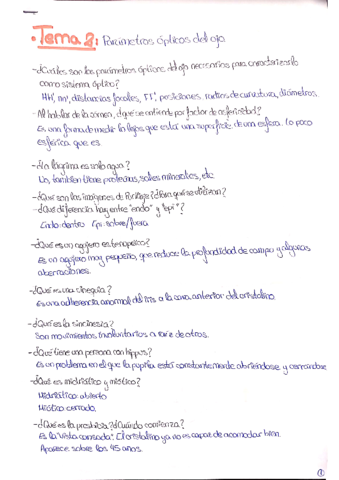 • Tema 2: Parámetros ópticos del ojo
-¿Cuáles son los parámetros ópticos del ojo necesarios para caracterizarlo
como sistema óptico?
HH', nn', distancias focales, FF', posiciones, radios de curvatura, diámetros.
-Al hablar de la córnea, ¿qué se entiende por factor de asfericidad?
Es una forma de medir lo lejos que está una superficie de una esfera. Lo poco
esférica que es.
-¿La lágrima es solo agua?
No, también tiene proteínas, sales minerales, etc.
-¿Qué son las imágenes de Purkinje? ¿Para qué se utilizan?
-¿Qué diferencia hay entre "endo" y "epi"?
Endo: dentro Epi: sobre/fuera
-¿Qué es un agujero estenopeico?
Es un agujero muy pequeño, que reduce la profundidad de campo y algunas
aberraciones.
-¿Qué es una sinequia?
Es una adherencia anormal del iris a la cara anterior del cristalino.
-¿Qué es la sincinesia?
Son movimientos involuntarios a raíz de otros.
-¿Qué tiene una persona con hippus?
Es un problema en el que la pupila está constantemente abriéndose y cerrándose
-¿Qué es midriático y miótico?
Midriático: abierto
Miótico: cerrado.
-¿Qué es la presbicia? ¿Cuándo comienza?
Es la "vista cansada". El cristalino ya no es capaz de acomodar bien.
Aparece sobre los 45 años.
1